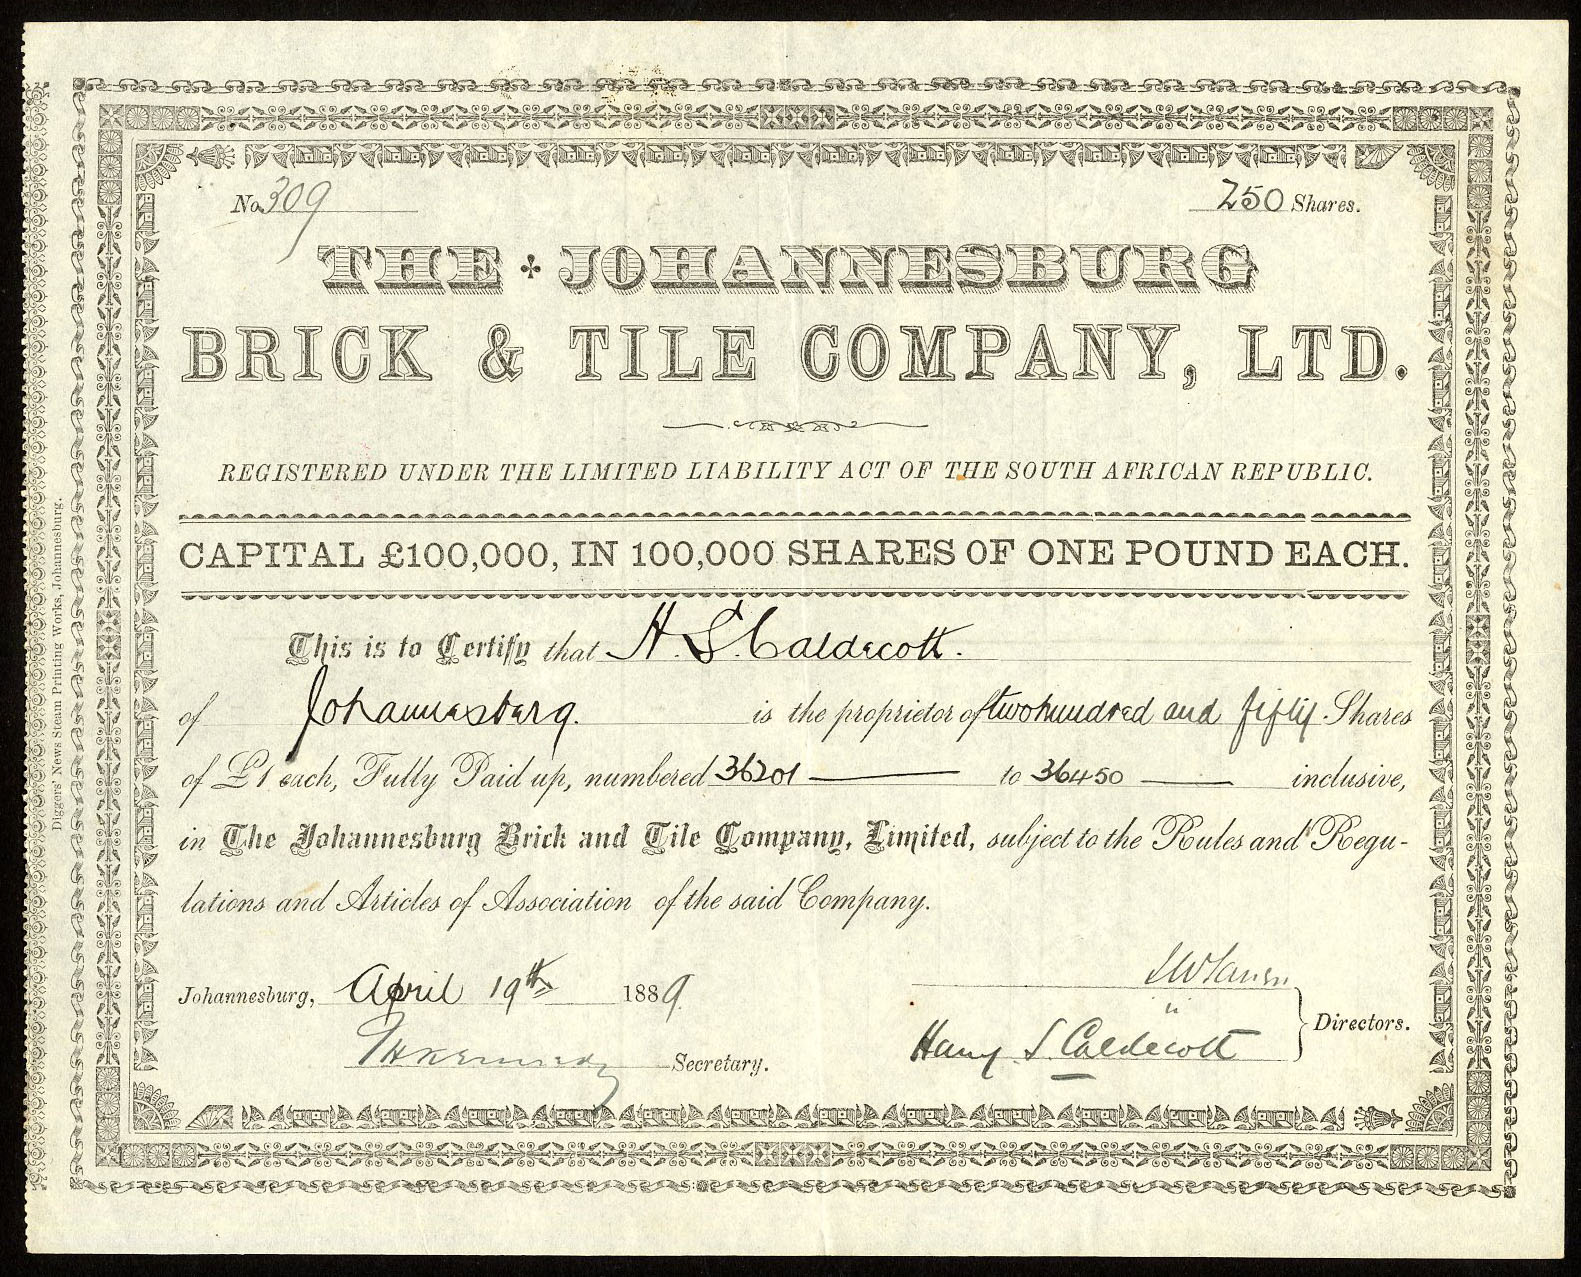 No. 309
250 Shares.
THE JOHANNESBURG
BRICK & TILE COMPANY, LTD.
REGISTERED UNDER THE LIMITED LIABILITY ACT OF THE SOUTH AFRICAN REPUBLIC.
CAPITAL £100,000, IN 100,000 SHARES OF ONE POUND EACH.
This is to Certify that H. S. Caldecott.
of Johannesburg. is the proprietor of two hundred and fifty Shares
of £1 each, Fully Paid up, numbered 36201 to 36450 inclusive,
in The Johannesburg Brick and Tile Company, Limited, subject to the Rules and Regu-
lations and Articles of Association of the said Company.
Johannesburg, April 19th 1889.
Kennedy Secretary.
Harry S. Caldecott
Directors.
Diggers' News Steam Printing Works, Johannesburg.